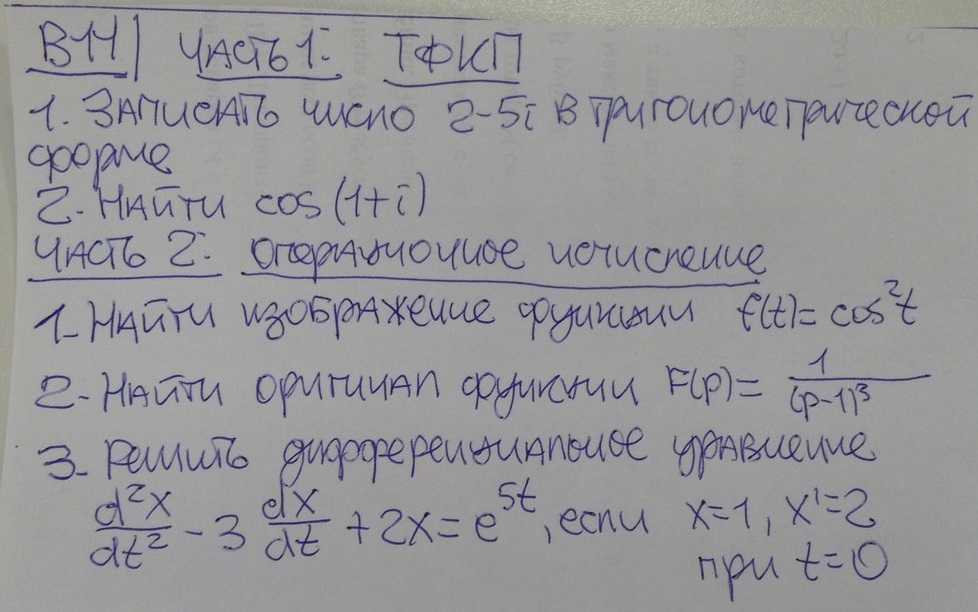 В14 Часть 1: ТФКП
1. Записать число 2-5i в тригонометрической
форме
2. Найти cos(1+i)
Часть 2: Операционное исчисление
1. Найти изображение функции f(t)=cos²t
2. Найти оригинал функции F(p)= 1/(p-1)³
3. Решить дифференциальное уравнение
d²x/dt² - 3 dx/dt + 2x = e^5t, если x=1, x'=2
при t=0